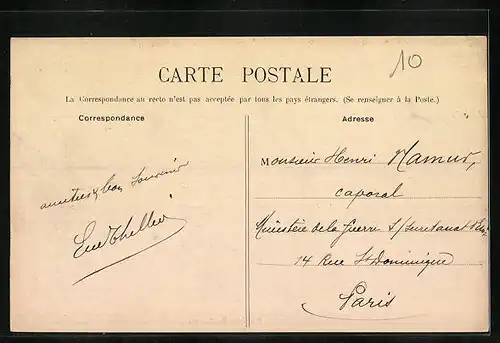 10
CARTE POSTALE
La Correspondance au recto n'est pas acceptée par tous les pays étrangers. (Se renseigner à la Poste.)
Correspondance
Adresse
amitiés & bon souvenir
Monsieur Henri Namur,
caporal
Ministère de la Guerre S/Secrétariat
14 Rue St Dominique
Paris